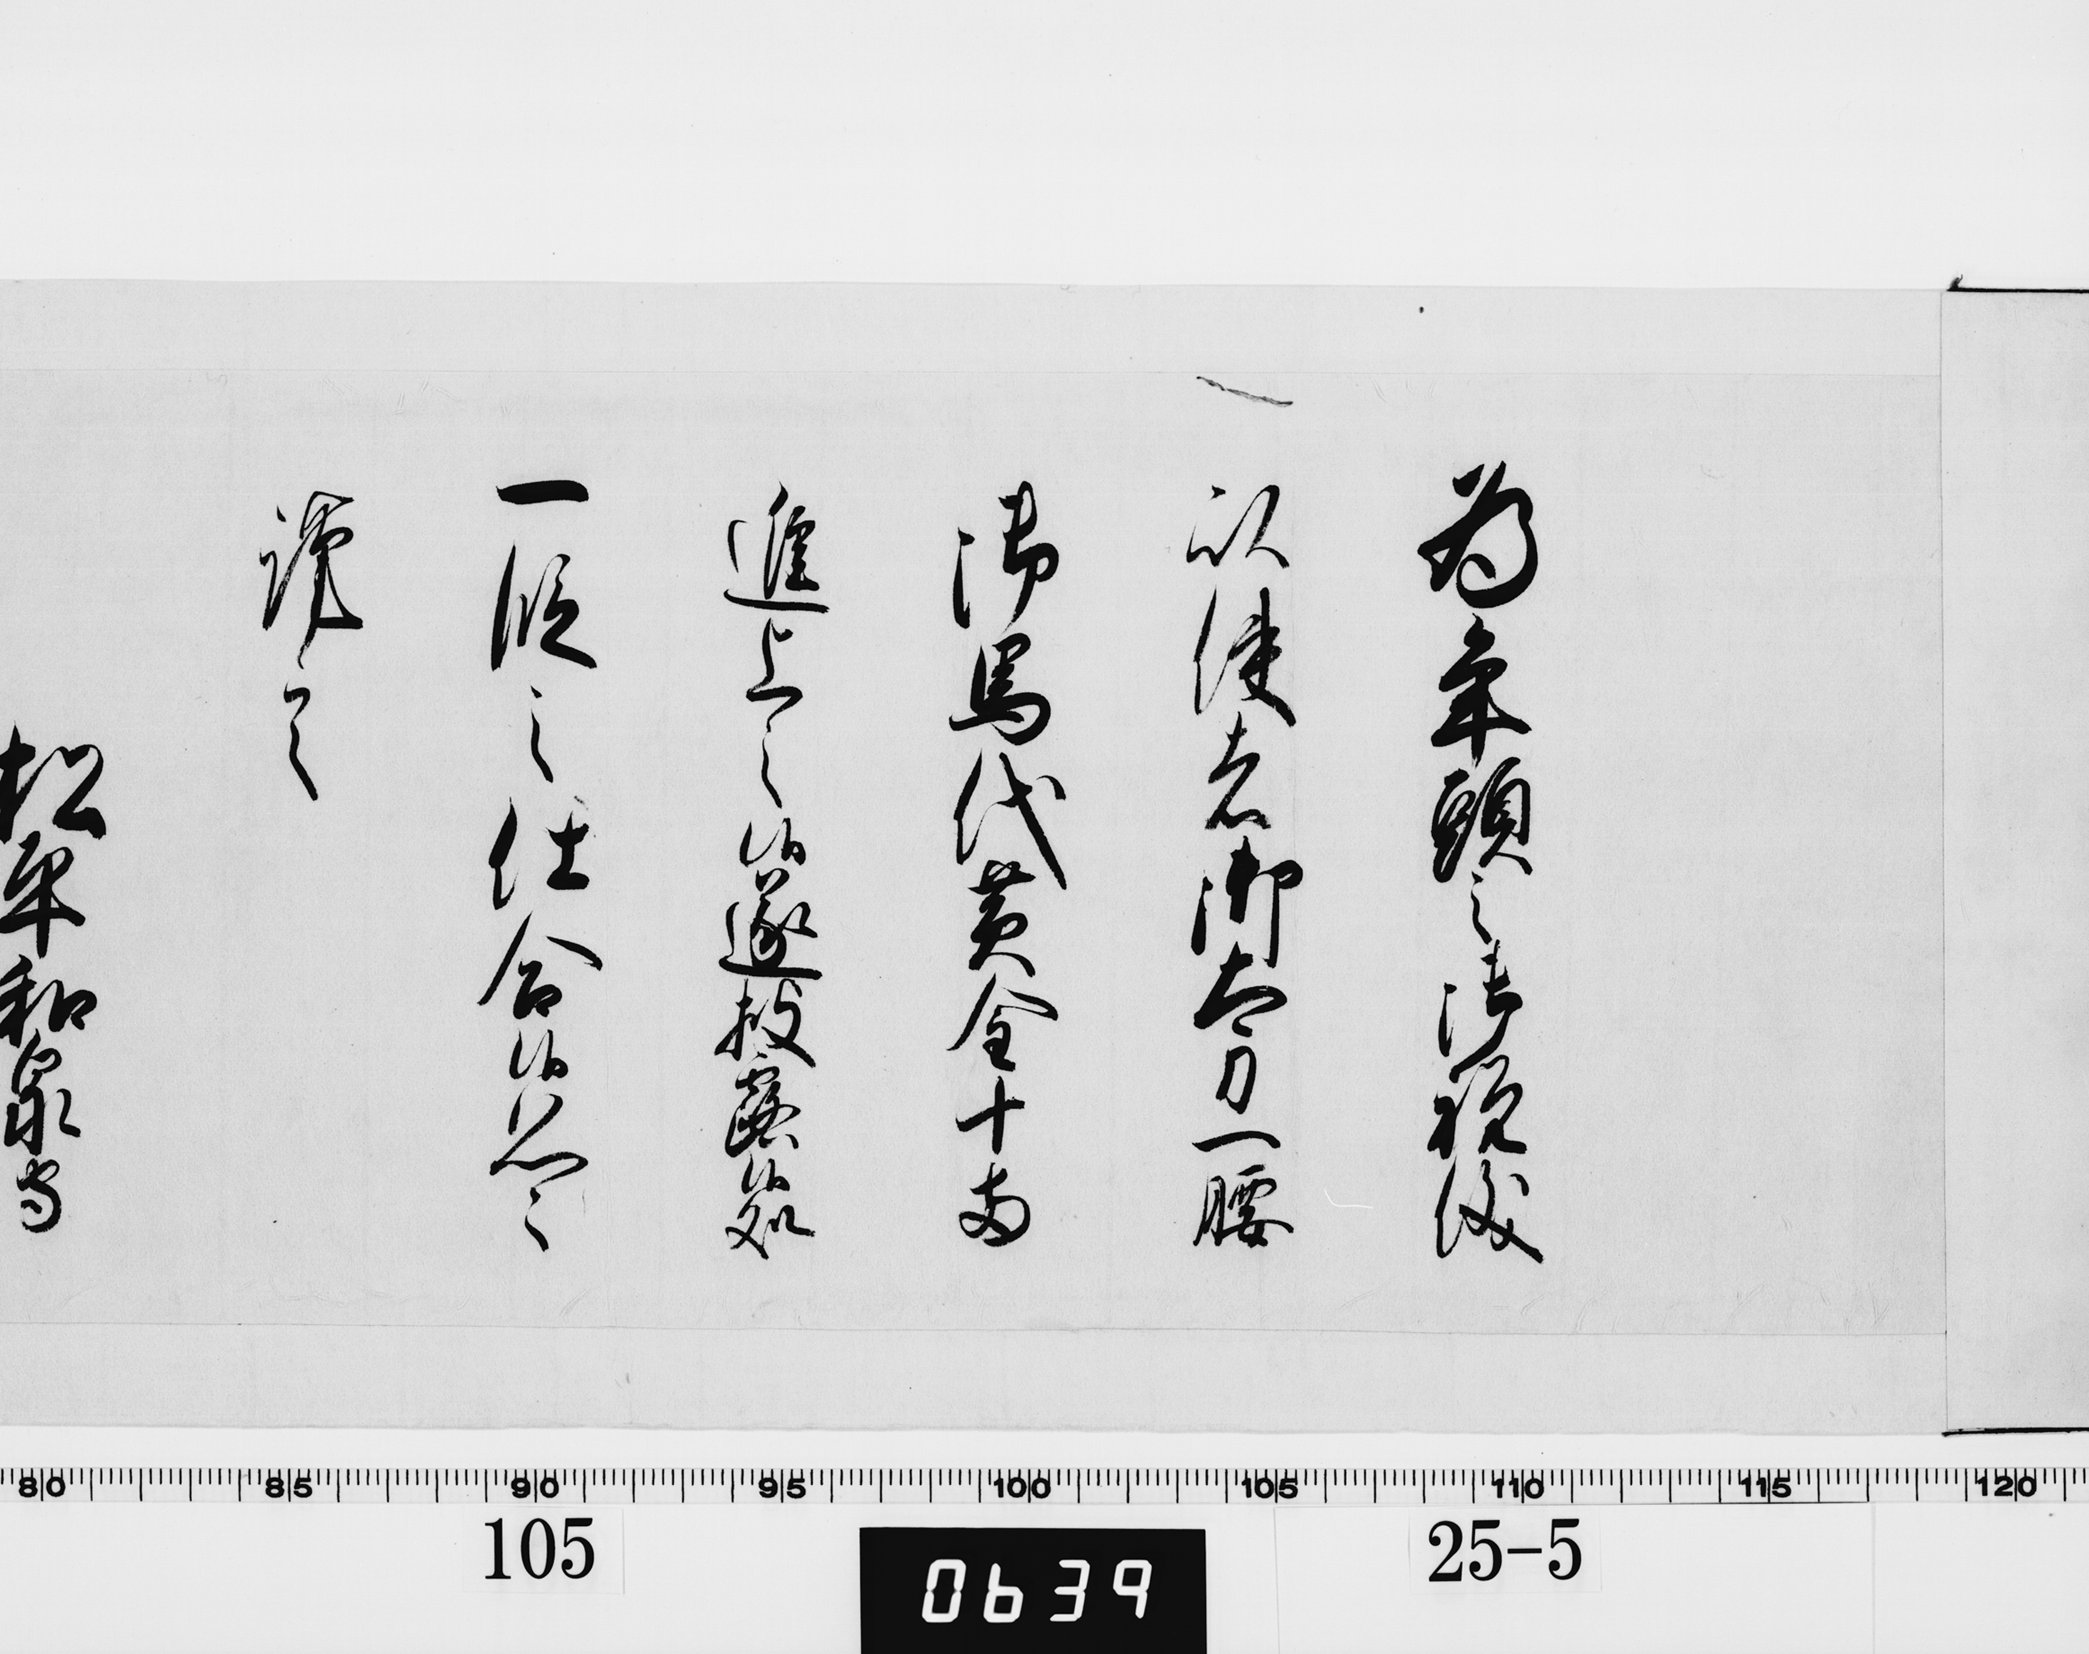 為年頭之御祝儀
以使者御太刀一腰
御馬代黄金十両
進上之候遂披露候処
一段之仕合候恐々
謹言
松平和泉守
80 85 90 95 100 105 110 115 120
105
0639
25-5